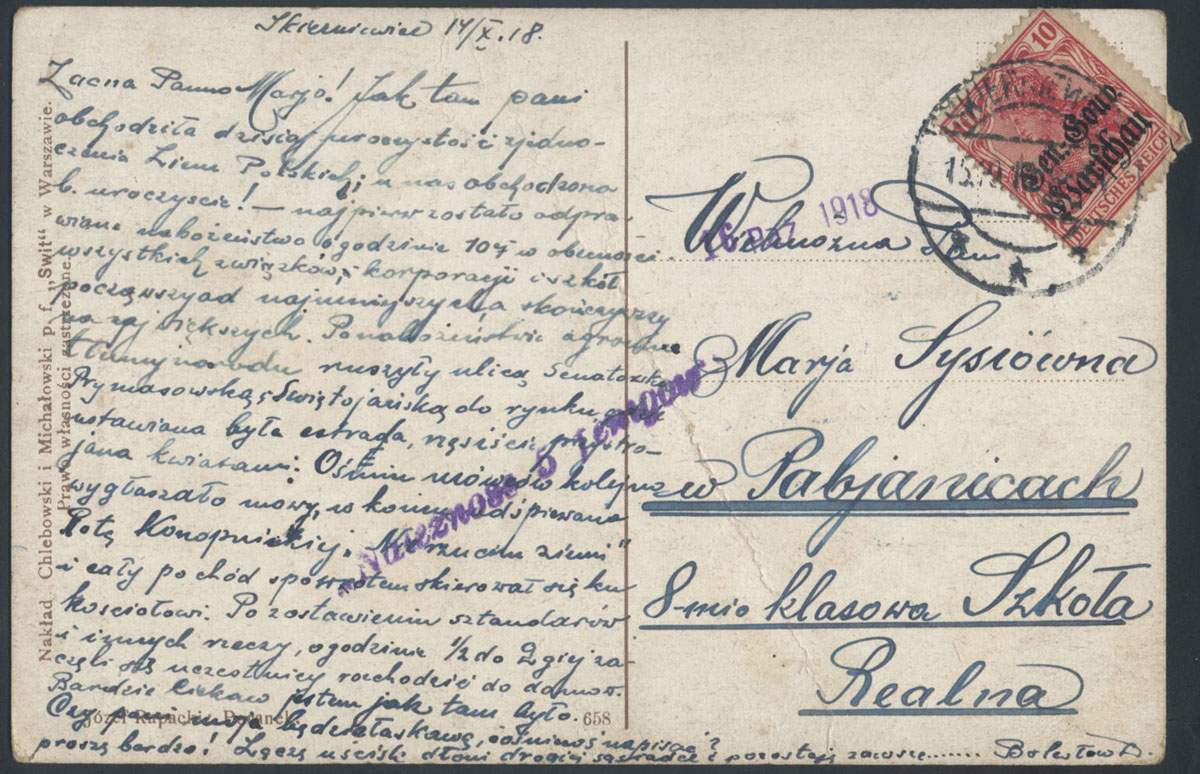 Skierniewice 14/X.18.
Zacna Panno Marjo! Jak tam pani
obchodziła dzisiaj uroczystość zjedno-
czenia Ziem Polskich, u nas obchodzono
b. uroczyście! — najpierw zostało odpra
wiane nabożeństwo o godzinie 10½ w obecności
wszystkich związków, korporacji i szkół
począwszy od najmniejszych a skończywszy
na największych. Po nabożeństwie ogromne
tłumy narodu ruszyły ulicą Senatorską
Prymasowską, Świętojańską do rynku, gdzie
ustawiana była estrada, rzęsiście przystro-
jana kwiatami. Ośmiu mówców kolejno
wygłaszało mowy, w końcu odśpiewano
Rotę Konopnickiej. „Nie rzucim ziemi"
i cały pochód spowrotem skierował się ku
kościołowi. Po zostawieniu sztandarów
i innych rzeczy, o godzinie 1/2 do 2giej za-
częli się uczestnicy rozchodzić do domów.
Bardzo ciekaw jestem jak tam było.
Czy pani moja będzie łaskawą, cośniecoś napisać?
proszę bardzo! Łączę uściski dłoni drogiej sąsiadce i pozostaję zawsze....... Bolesław D.
Nakład. Chlebowski i Michałowski p. f. „Świt" w Warszawie.
Prawo własności zastrzeżone.
Józef Rapacki. Poranek.
658
10
Gen.-Gouv.
Warschau
DEUTSCHES REICH
16 PAŹ 1918
„Należność 5 fenigów"
Wielmożna Pani
Marja Sysiówna
w Pabjanicach
8-mio klasowa Szkoła
Realna